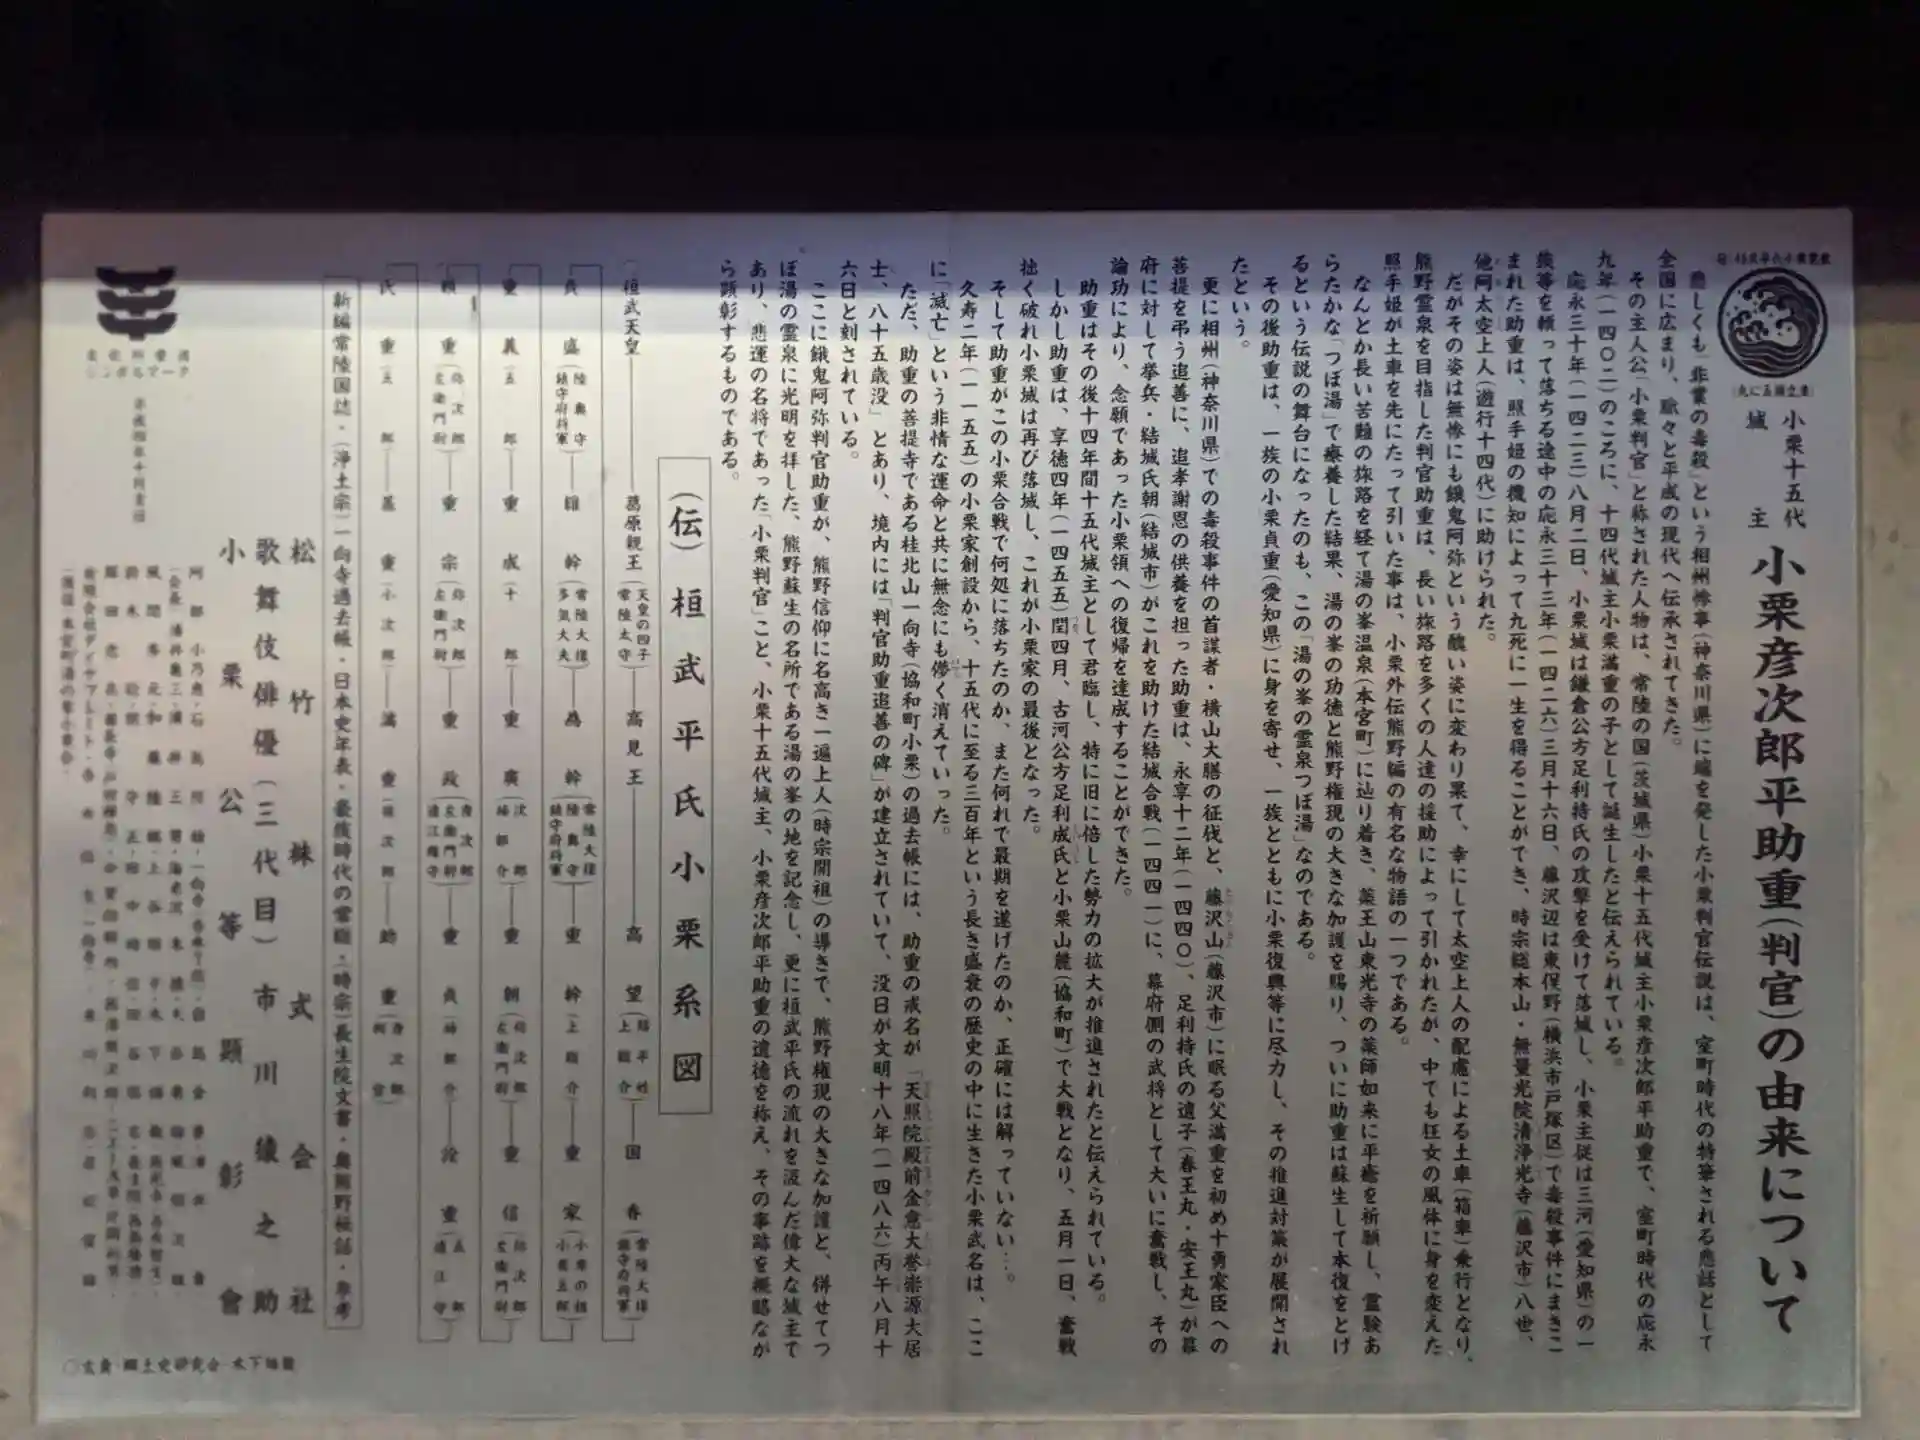 小栗十五代
城主
小栗彦次郎平助重(判官)の由来について
悲しくも「非業の毒殺」という相州惨事(神奈川県)に端を発した小栗判官伝説は、室町時代の特筆される悲話として
全国に広まり、脈々と平成の現代へ伝承されてきた。
その主人公「小栗判官」と称された人物は、常陸の国(茨城県)小栗十五代城主小栗彦次郎平助重で、室町時代の応永
九年(一四〇二)のころに、十四代城主小栗満重の子として誕生したと伝えられている。
応永三十年(一四二三)八月二日、小栗城は鎌倉公方足利持氏の攻撃を受けて落城し、小栗主従は三河(愛知県)の一
族等を頼って落ちる途中の応永三十三年(一四二六)三月十六日、藤沢辺は東俣野(横浜市戸塚区)で毒殺事件にまきこ
まれた助重は、照手姫の機知によって九死に一生を得ることができ、時宗総本山・無量光院清浄光寺(藤沢市)八世、
他阿太空上人(遊行十四代)に助けられた。
だがその姿は無惨にも餓鬼阿弥という醜い姿に変わり果て、幸にして太空上人の配慮による土車(箱車)乗行となり、
熊野霊泉を目指した判官助重は、長い旅路を多くの人達の援助によって引かれたが、中でも狂女の風体に身を変えた
照手姫が土車を先にたって引いた事は、小栗外伝熊野編の有名な物語の一つである。
なんとか長い苦難の旅路を経て湯の峯温泉(本宮町)に辿り着き、薬王山東光寺の薬師如来に平癒を祈願し、霊験あ
らたかな「つぼ湯」で療養した結果、湯の峯の功徳と熊野権現の大きな加護を賜り、ついに助重は蘇生して本復をとげ
るという伝説の舞台になったのも、この「湯の峯の霊泉つぼ湯」なのである。
その後助重は、一族の小栗貞重(愛知県)に身を寄せ、一族とともに小栗復興等に尽力し、その推進対策が展開され
たという。
更に相州(神奈川県)での毒殺事件の首謀者・横山大膳の征伐と、藤沢山(藤沢市)に眠る父満重を初め十勇家臣への
菩提を弔う追善に、追孝謝恩の供養を担った助重は、永享十二年(一四四〇)、足利持氏の遺子(春王丸・安王丸)が幕
府に対して挙兵・結城氏朝(結城市)がこれを助けた結城合戦(一四四一)に、幕府側の武将として大いに奮戦し、その
論功により、念願であった小栗領への復帰を達成することができた。
助重はその後十四年間十五代城主として君臨し、特に旧に倍した勢力の拡大が推進されたと伝えられている。
しかし助重は、享徳四年(一四五五)閏四月、古河公方足利成氏と小栗山麓(協和町)で大戦となり、五月一日、奮戦
拙く破れ小栗城は再び落城し、これが小栗家の最後となった。
そして助重がこの小栗合戦で何処に落ちたのか、また何れで最期を遂げたのか、正確には解っていない…。
久寿二年(一一五五)の小栗家創設から、十五代に至る三百年という長き盛衰の歴史の中に生きた小栗武名は、ここ
に「滅亡」という非情な運命と共に無念にも儚く消えていった。
ただ、助重の菩提寺である桂北山一向寺(協和町小栗)の過去帳には、助重の戒名が「天照院殿前金意大誉崇源大居
士、八十五歳没」とあり、境内には「判官助重追善の碑」が建立されていて、没日が文明十八年(一四八六)丙午八月十
六日と刻されている。
ここに餓鬼阿弥判官助重が、熊野信仰に名高き一遍上人(時宗開祖)の導きで、熊野権現の大きな加護と、併せてつ
ぼ湯の霊泉に光明を拝した、熊野蘇生の名所である湯の峯の地を記念し、更に桓武平氏の流れを汲んだ偉大な城主で
あり、悲運の名将であった「小栗判官」こと、小栗十五代城主、小栗彦次郎平助重の遺徳を称え、その事跡を概略なが
ら顕彰するものである。
(伝)桓武平氏小栗系図
桓武天皇 葛原親王(天皇の四子 常陸太守) 高見王 高望(賜平姓 上総介) 国香(常陸大掾 鎮守府将軍)
貞盛(陸奥守 鎮守府将軍) 維幹(常陸大掾 多気大夫) 為幹(常陸大掾 陸奥守 鎮守府将軍) 重幹(上総介) 重家(小栗の祖 小栗五郎)
重義(五郎) 重成(十郎) 重広(次郎) 重朝(弥次郎 左衛門尉) 重信(弥次郎 左衛門尉)
頼重(弥次郎 左衛門尉) 重宗(弥次郎 左衛門尉) 重政 重貞 詮重
氏重(五郎) 基重(小次郎) 満重(孫次郎) 助重(彦次郎 判官)
新編常陸国誌・(浄土宗)一向寺過去帳・日本史年表・最後時代の霊験・(時宗)長生院文書・奥熊野秘話・参考
松竹株式会社
歌舞伎俳優(三代目)市川猿之助
小栗公等顕彰會